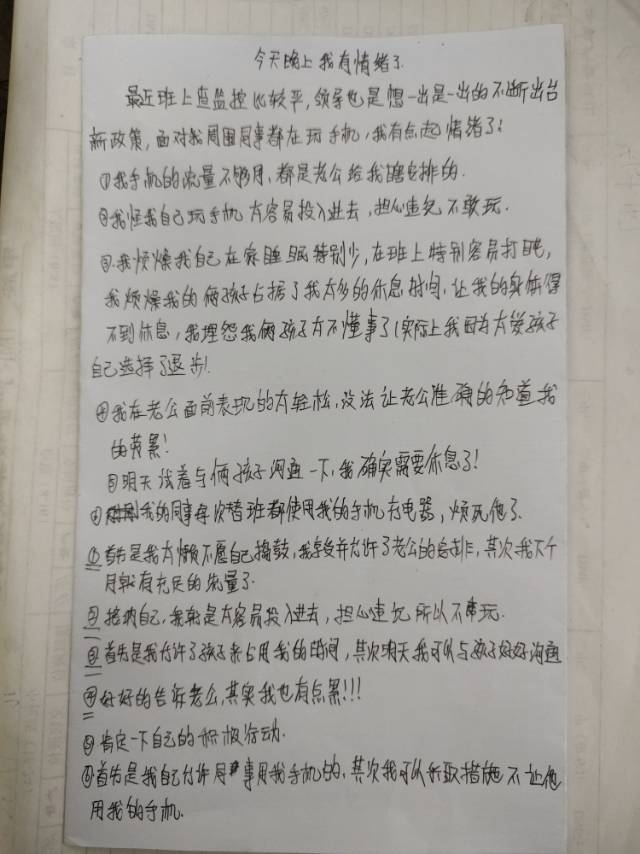 今天晚上我有情绪了.
最近班上查监控比较平,领导也是想一出是一出的不断出台
新政策,面对我周围同事都在玩手机,我有点起情绪了!
①我手机的流量不够用,都是老公给我瞎安排的.
②我怪我自己玩手机太容易投入进去,担心违纪不敢玩.
③.我烦燥我自己在家睡眠特别少,在班上特别容易打盹,
我烦燥我的俩孩子占据了我太多的休息时间,让我的身体得
不到休息,我埋怨我俩孩子太不懂事了(实际上我因为太爱孩子
自己选择了退步).
④我在老公面前表现的太轻松,没法让老公准确的知道我
的劳累!
⑤明天试着与俩孩子沟通一下,我确实需要休息了!
我的同事每次替班都使用我的手机充电器,烦死他了.
①首先是我太懒不愿自己捣鼓,我接受并允许了老公的安排,其次我下个
月就有充足的流量了.
②接纳自己,我就是太容易投入进去,担心违纪所以不敢玩.
③首先是我允许了孩子来占用我的时间,其次明天我可以与孩子好好沟通
④好好的告诉老公,其实我也有点累!!!
⑤肯定一下自己的积极行动.
⑥首先是我自己允许同事用我手机的,其次我可以采取措施不让他
用我的手机.